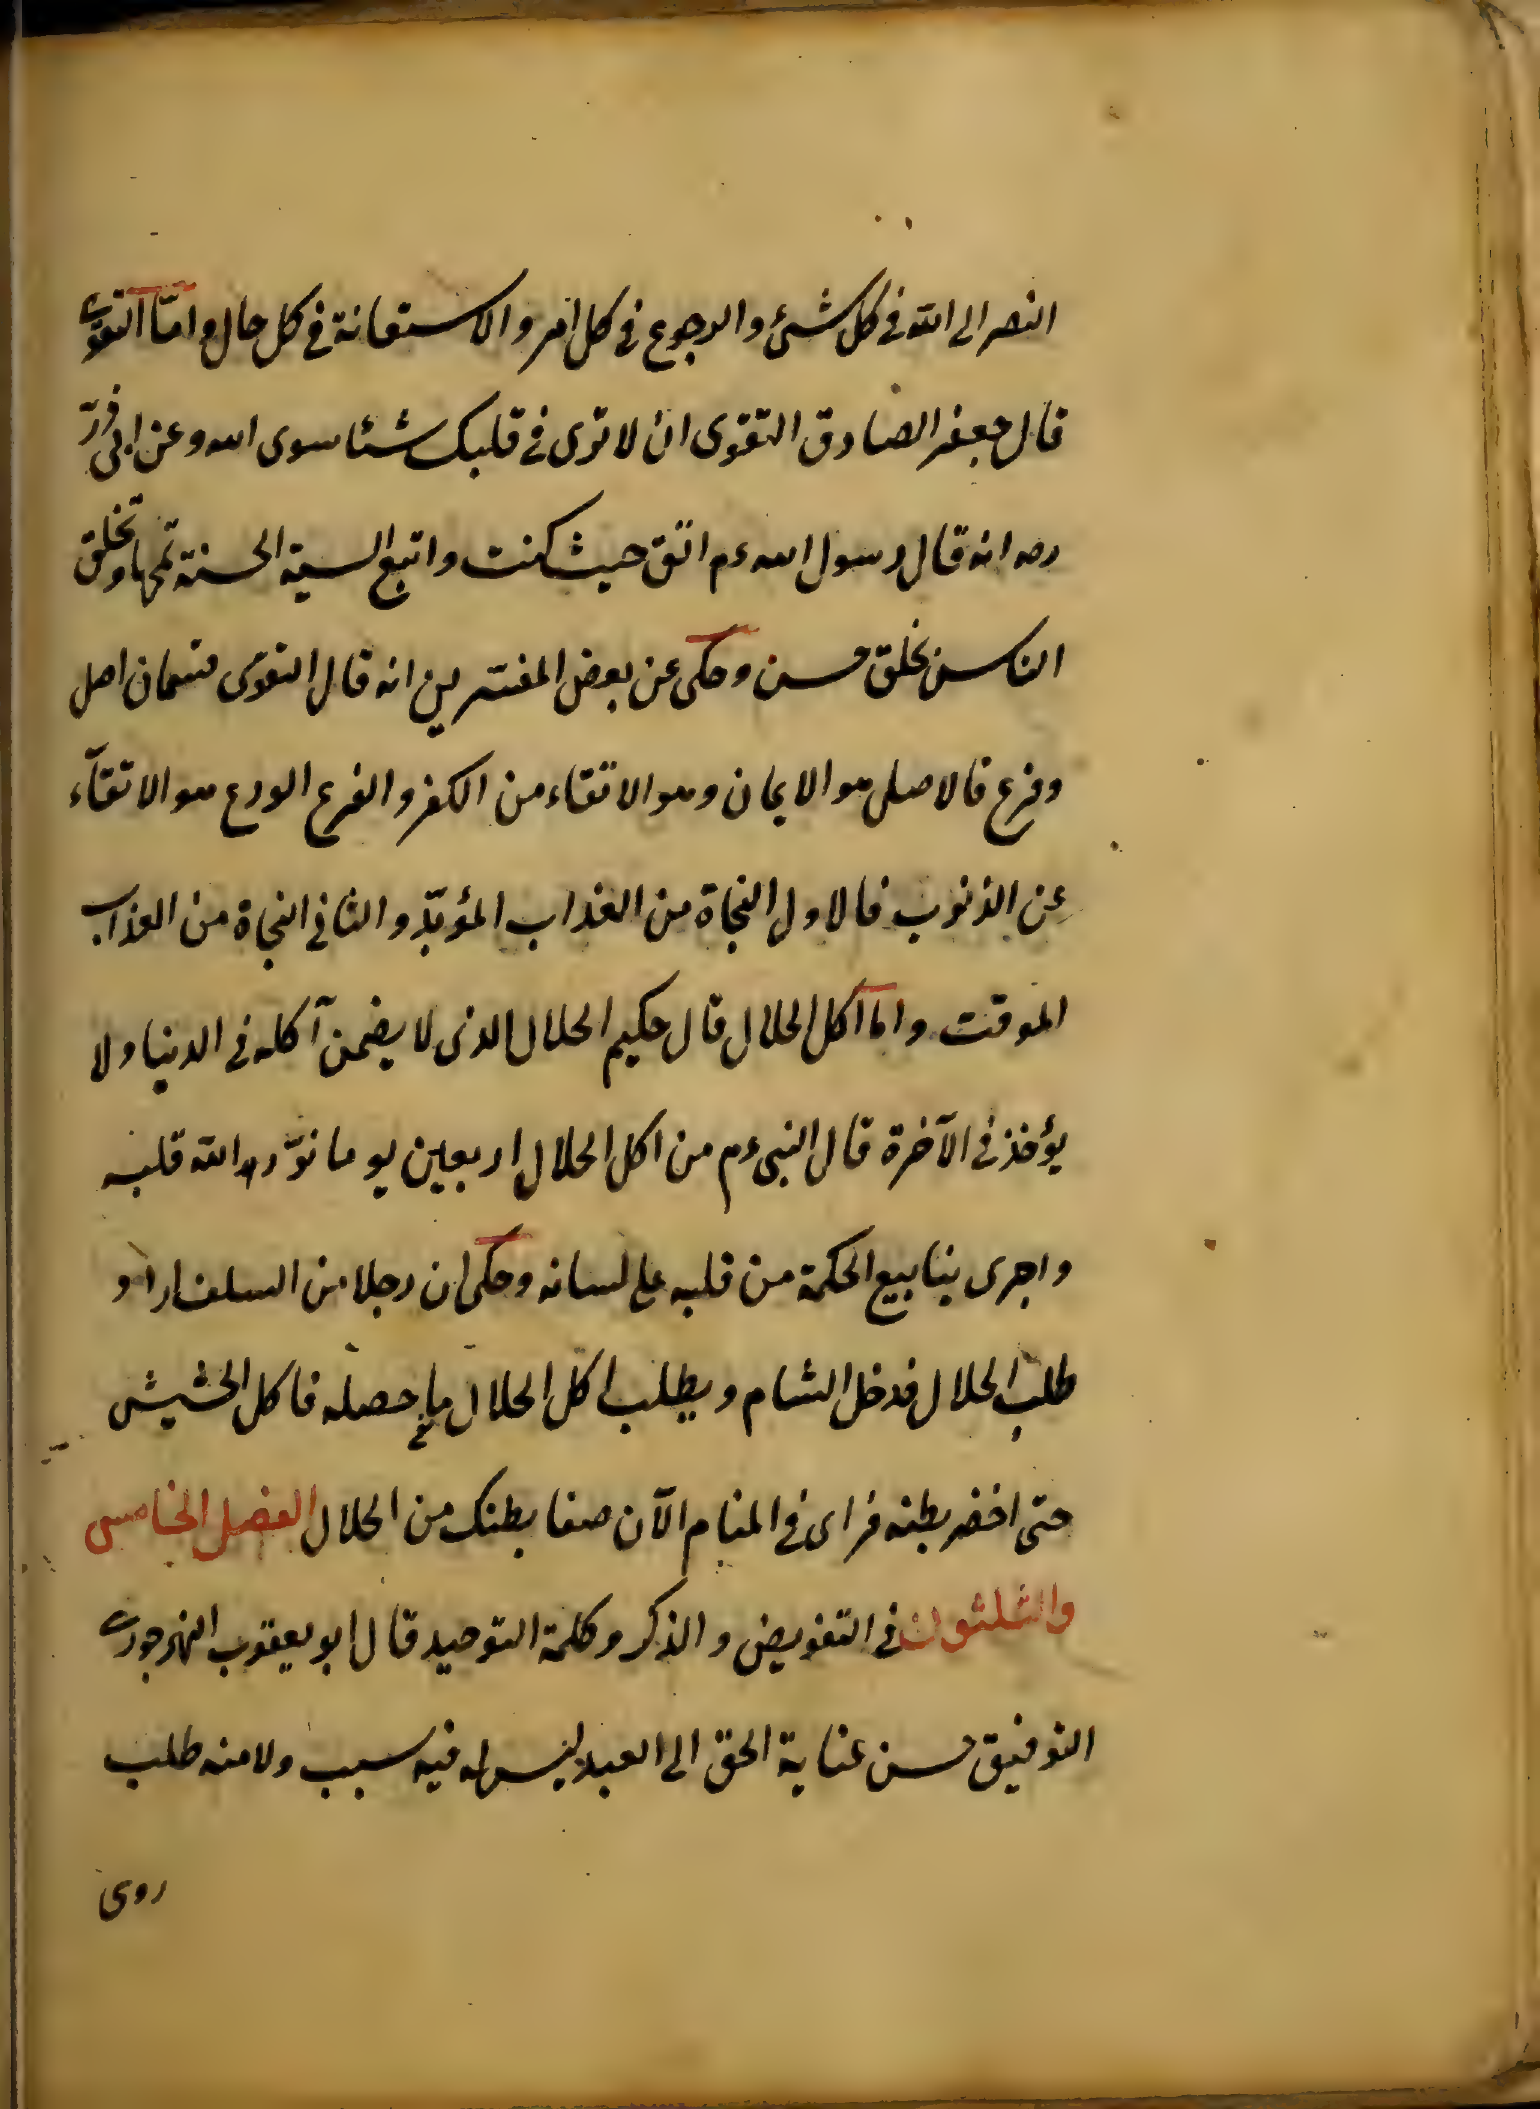 النصر الى الله فى كل شئ والرجوع فى كل امر والاستعانة فى كل حال وامّا التقوى
قال جعفر الصادق التقوى ان لا ترى فى قلبك شئا سوى الله وعن ابى ذرّ
رصه انه قال رسول الله عم اتق حيث كنت واتبع السيئة الحسنة تمحها وتخلق
الناس بخلق حسن وحكى عن بعض المفسّرين انه قال التقوى قسمان اصل
وفرع فالاصل هو الايمان وهو الاتقاء من الكفر والفرع الورع هو الاتقآء
عن الذنوب فالاول النجاة من العذاب المؤبّد والثانى النجاة من العذاب
الموقت واما اكل الحلال قال حكيم الحلال الذى لا يضمن آكله فى الدنيا ولا
يؤخذ فى الآخرة قال النبى عم من اكل الحلال اربعين يوما نوّره الله قلبه
واجرى ينابيع الحكمة من قلبه على لسانه وحكى ان رجلا من السلف اراد
طلب الحلال فدخل الشام ويطلب اكل الحلال ما حصله فاكل الحشيش
حتى اخضر بطنه فراى فى المنام الآن صفا بطنك من الحلال الفصل الخامس
والثلثون فى التفويض والذكر وكلمة التوحيد قال ابو يعقوب النهرجورى
التوفيق حسن عناية الحق الى العبد ليس له فيه سبب ولا منه طلب
روى